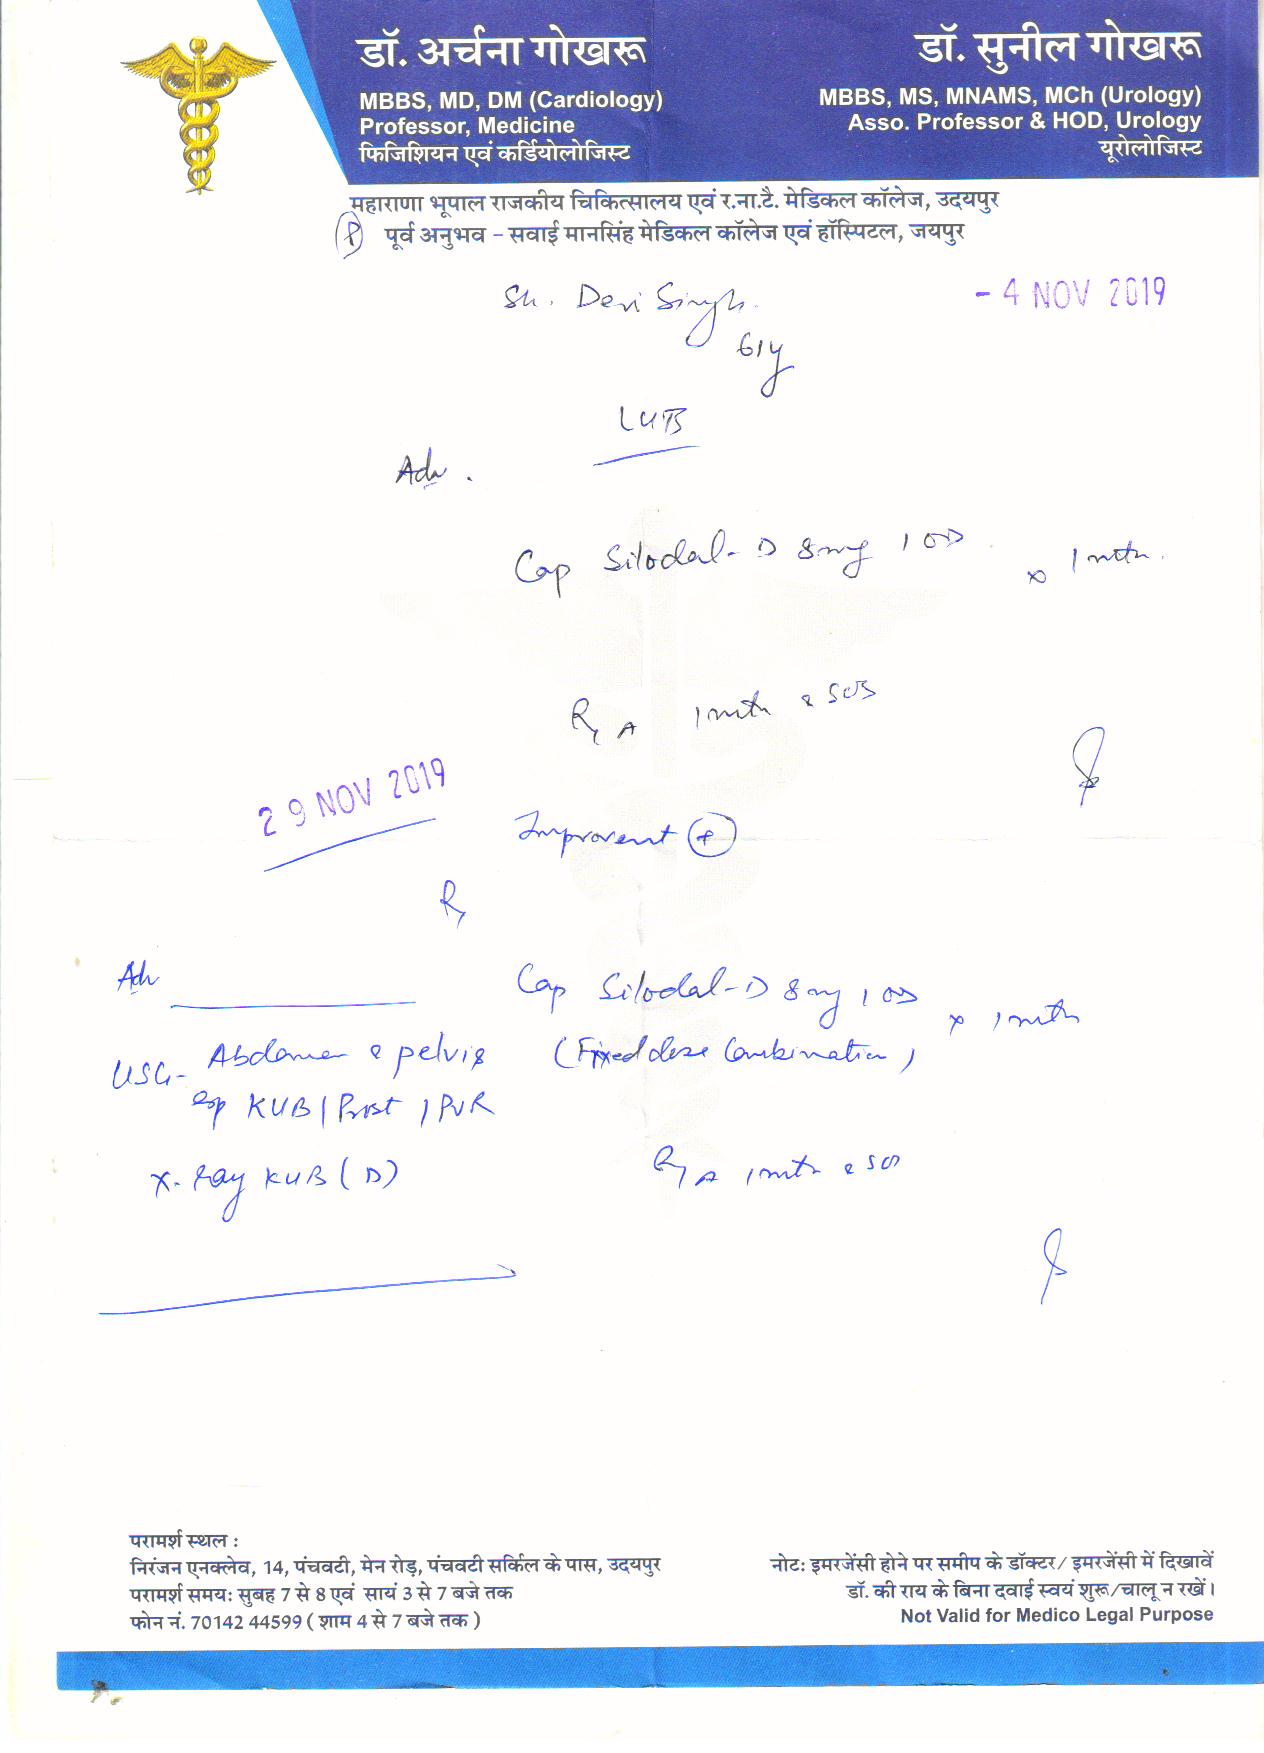 डॉ. अर्चना गोखरू
MBBS, MD, DM (Cardiology)
Professor, Medicine
फिजिशियन एवं कर्डियोलोजिस्ट
डॉ. सुनील गोखरू
MBBS, MS, MNAMS, MCh (Urology)
Asso. Professor & HOD, Urology
यूरोलोजिस्ट
महाराणा भूपाल राजकीय चिकित्सालय एवं र.ना.टै. मेडिकल कॉलेज, उदयपुर
पूर्व अनुभव – सवाई मानसिंह मेडिकल कॉलेज एवं हॉस्पिटल, जयपुर
Sh. Devi Singh
- 4 NOV 2019
61y
Adv.
Cap Silodal-D 8mg 1 OD x 1 mth.
1 mth & SOS
29 NOV 2019
Improvent +
R
Adv
Cap Silodal-D 8mg 1 OD x 1 mth
USG- Abdomen & pelvis
(Fixed dose Combination)
esp KUB/Prost/PVR
X-Ray KUB (D)
1 mth & SOS
परामर्श स्थल :
निरंजन एनक्लेव, 14, पंचवटी, मेन रोड़, पंचवटी सर्किल के पास, उदयपुर
परामर्श समय: सुबह 7 से 8 एवं सायं 3 से 7 बजे तक
फोन नं. 70142 44599 ( शाम 4 से 7 बजे तक )
नोट: इमरजेंसी होने पर समीप के डॉक्टर/ इमरजेंसी में दिखावें
डॉ. की राय के बिना दवाई स्वयं शुरू/चालू न रखें।
Not Valid for Medico Legal Purpose